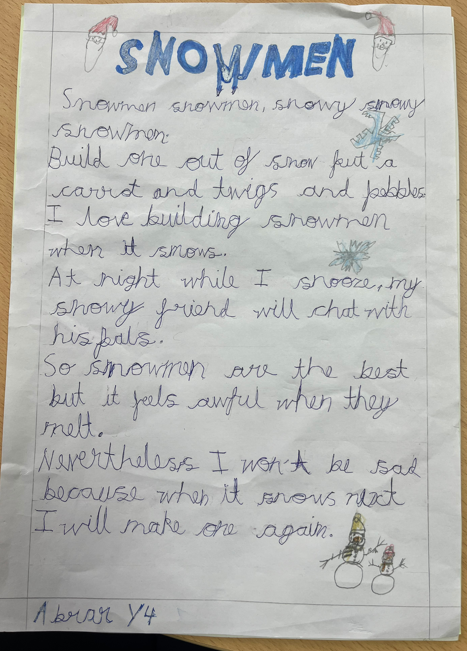 SNOWMEN
Snowmen snowmen, snowy snowy
snowmen.
Build one out of snow put a
carrot and twigs and pebbles
I love building snowmen
when it snows.
At night while I snooze, my
snowy friend will chat with
his pals.
So snowmen are the best
but it feels awful when they
melt.
Nevertheless I won't be sad
because when it snows next
I will make one again.
Abrar Y4